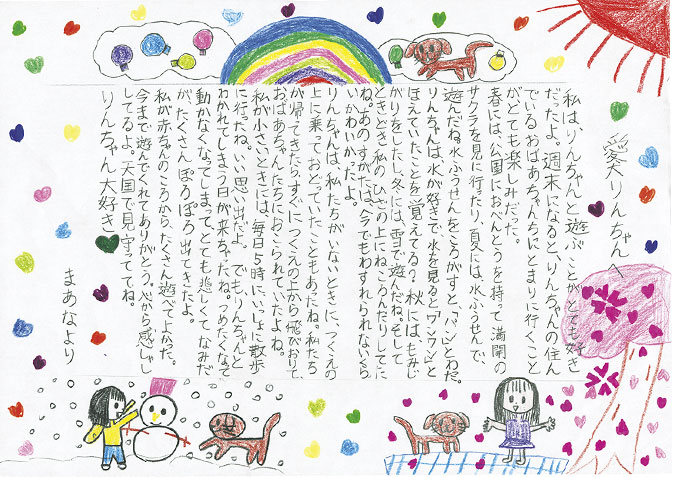 愛犬りんちゃんへ
私は、りんちゃんと遊ぶことがとても好き
だったよ。週末になると、りんちゃんの住ん
でいるおばあちゃんちにとまりに行くこと
がとても楽しみだった。
春には、公園におべんとうを持って満開の
サクラを見に行ったり、夏には、水ふうせんで、
遊んだね。水ふうせんをころがすと、「バン」とわった。
りんちゃんは、水が好きで、水を見ると「ワンワン」と
ほえていたことを覚えてる?秋にはもみじ
がりをしたし、冬には、雪で遊んだね。そして
ときどき、私のひざの上にね、ころんだりしてい
ね。あのすがたは、今でもわすれられないくら
いかわいかったよ。
りんちゃんは、私たちがいないときに、つくえの
上に乗っておどっていたこともあったね。私たち
が帰ってきたら、すぐにつくえの上から飛びおりて、
おばあちゃんたちにおこられていたよね。
私が小さいときには、毎日5時にいっしょに散歩
に行ったね。いい思い出だよ。でも、りんちゃんと
わかれてしまう日が来ちゃったね。つめたくなって
動かなくなってしまって、とても悲しくてなみだ
が、たくさんぽろぽろ出てきたよ。
私が赤ちゃんのころから、たくさん遊べてよかった。
今まで遊んでくれてありがとう。心から感しゃ
してるよ。天国で見守っててね。
りんちゃん大好き
まあなより